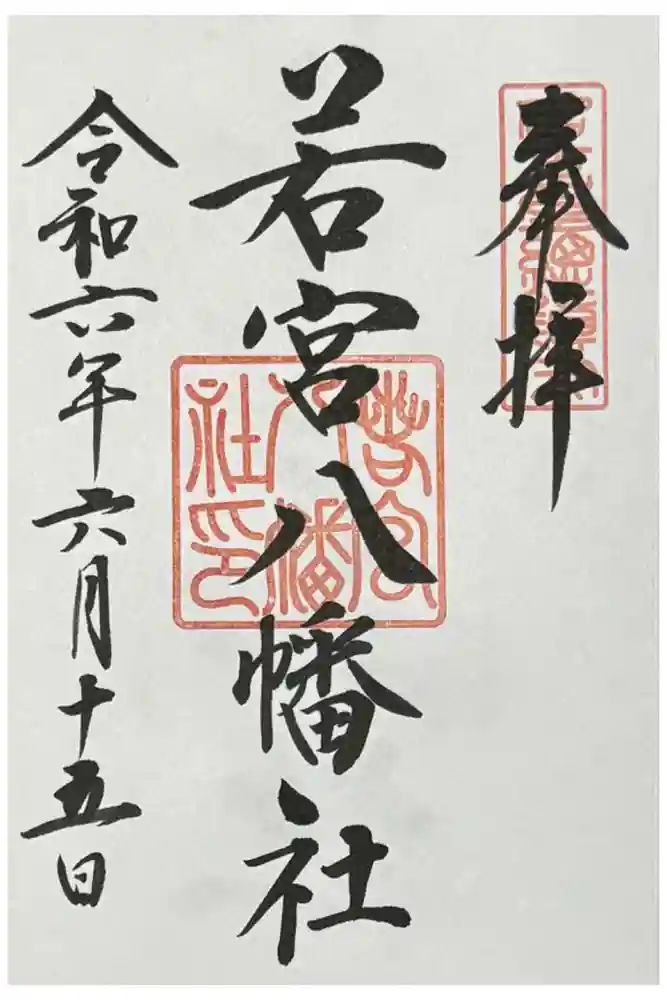 奉拝
若宮八幡社
令和六年六月十五日
若宮
八幡
社印